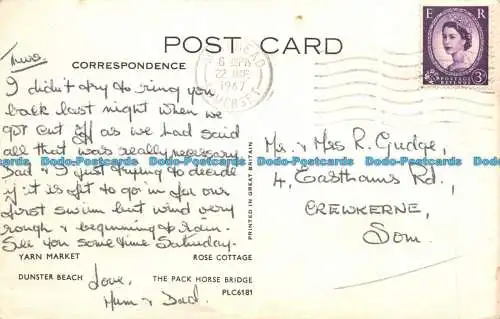 POST CARD
CORRESPONDENCE
E R
POSTAGE
REVENUE
3D
6 PM
22
1967
SOMERSET
I didn't try to ring you
back last night when we
got cut off as we had said
all that was really necessary
Dad & I just trying to decide
if it is fit to go in for our
first swim but wind very
rough & beginning to rain.
See you some time Saturday.
Love,
Mum & Dad.
YARN MARKET
ROSE COTTAGE
DUNSTER BEACH
THE PACK HORSE BRIDGE
PLC6181
PRINTED IN GREAT BRITAIN
Mr. & Mrs R. Gudge,
4, Easthams Rd.,
CREWKERNE,
Som.
Dodo-Postcards.com Dodo-Postcards.com Dodo-Postcards.com